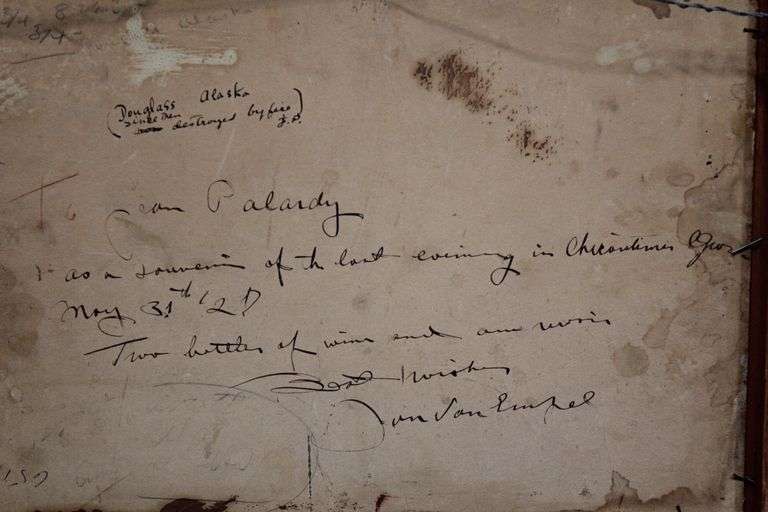 3/4
(Douglass Alaska
since then
destroyed by fire)
J.P.
To Jean Palardy
as a souvenir of the last evening in
May 31th '2
Two bottles of wine and au revoir
Best Wishes
Jan Van Empel